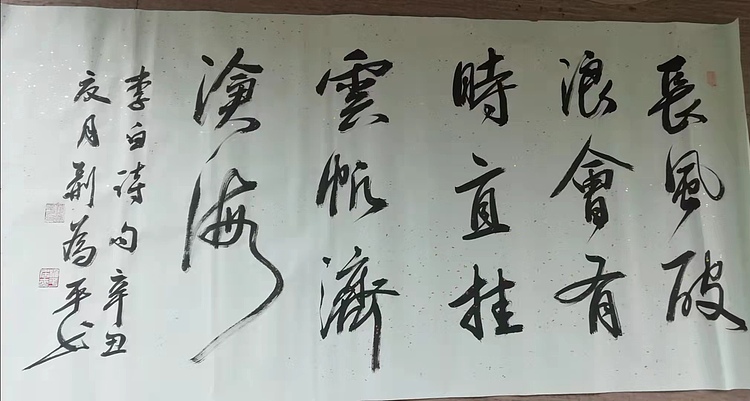 長風破
浪會有
時直挂
雲帆濟
滄海
李白诗句辛丑
夜月荆為平书